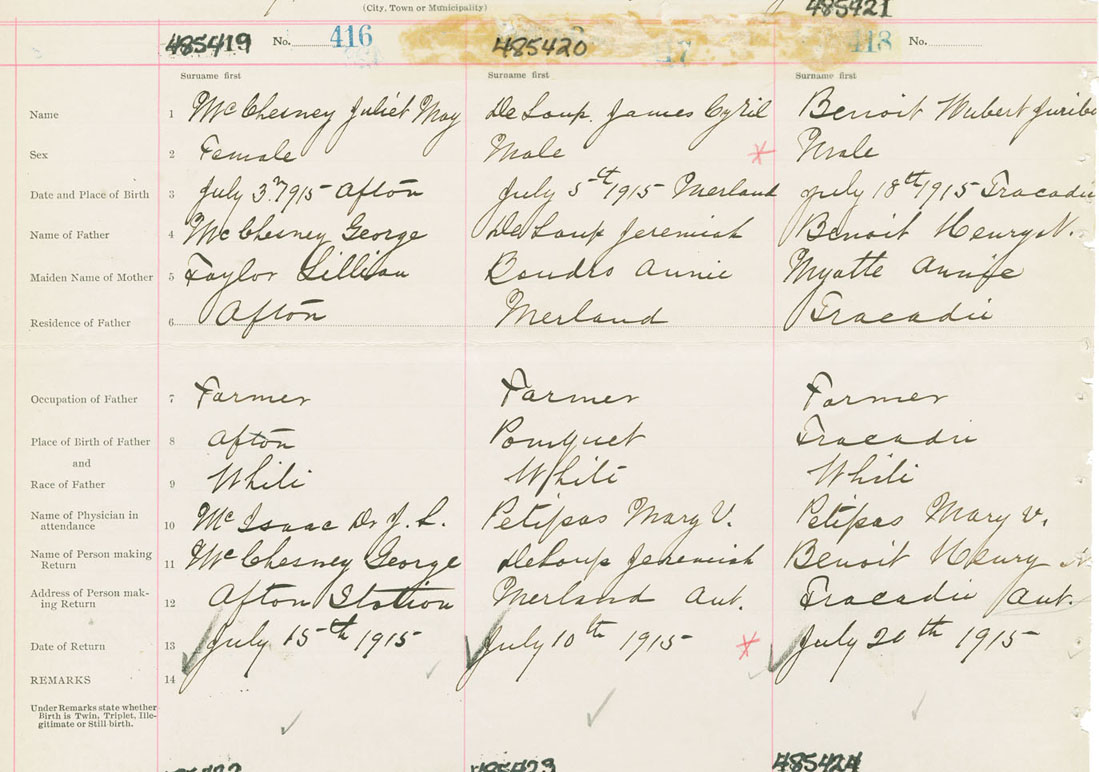 (City, Town or Municipality)
485421
485419 No. 416 485420 418 No.
Surname first Surname first Surname first
Name 1 McChesney Juliet May DeLoup. James Cyril Benoit Hubert
Sex 2 Female Male Male
Date and Place of Birth 3 July 3. 1915 Afton July 5th 1915 Merland July 18th 1915 Tracadie
Name of Father 4 McChesney George DeLoup Jeremiah Benoit Henry N.
Maiden Name of Mother 5 Taylor Lillian Boudro Annie Myatte Annie
Residence of Father 6 Afton Merland Tracadie
Occupation of Father 7 Farmer Farmer Farmer
Place of Birth of Father 8 Afton Pomquet Tracadie
and
Race of Father 9 White White White
Name of Physician in
attendance 10 McIsaac Dr J. L. Petipas Mary V. Petipas Mary V.
Name of Person making
Return 11 McChesney George DeLoup Jeremiah Benoit Henry N
Address of Person mak-
ing Return 12 Afton Station Merland Ant. Tracadie Ant.
Date of Return 13 July 15th 1915 July 10th 1915 July 20th 1915
REMARKS 14
Under Remarks state whether
Birth is Twin, Triplet, Ille-
gitimate or Still birth.
485423 485424